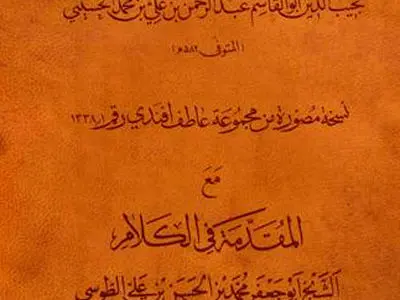 نجيب الدين ابو القاسم عبد الرحمن بن علي بن محمد الحسيني
(المتوفى ٥٨٢ م)
نسخة مصورة من مجموعة عاطف افندي رقم ١٣٣٨/١
مع
المقدمة في الكلام
الشيخ ابو جعفر محمد بن الحسن بن علي الطوسي